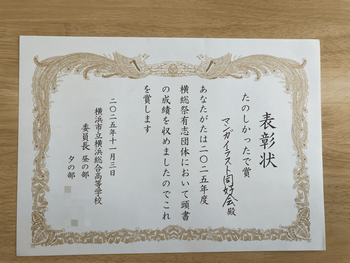 表彰状
たのしかったで賞
マンガイラスト同好会殿
あなたがたは二〇二五年度
横総祭有志団体において頭書
の成績を収めましたのでこれ
を賞します
二〇二五年十一月三日
横浜市立横浜総合高等学校
委員長 昼の部
夕の部